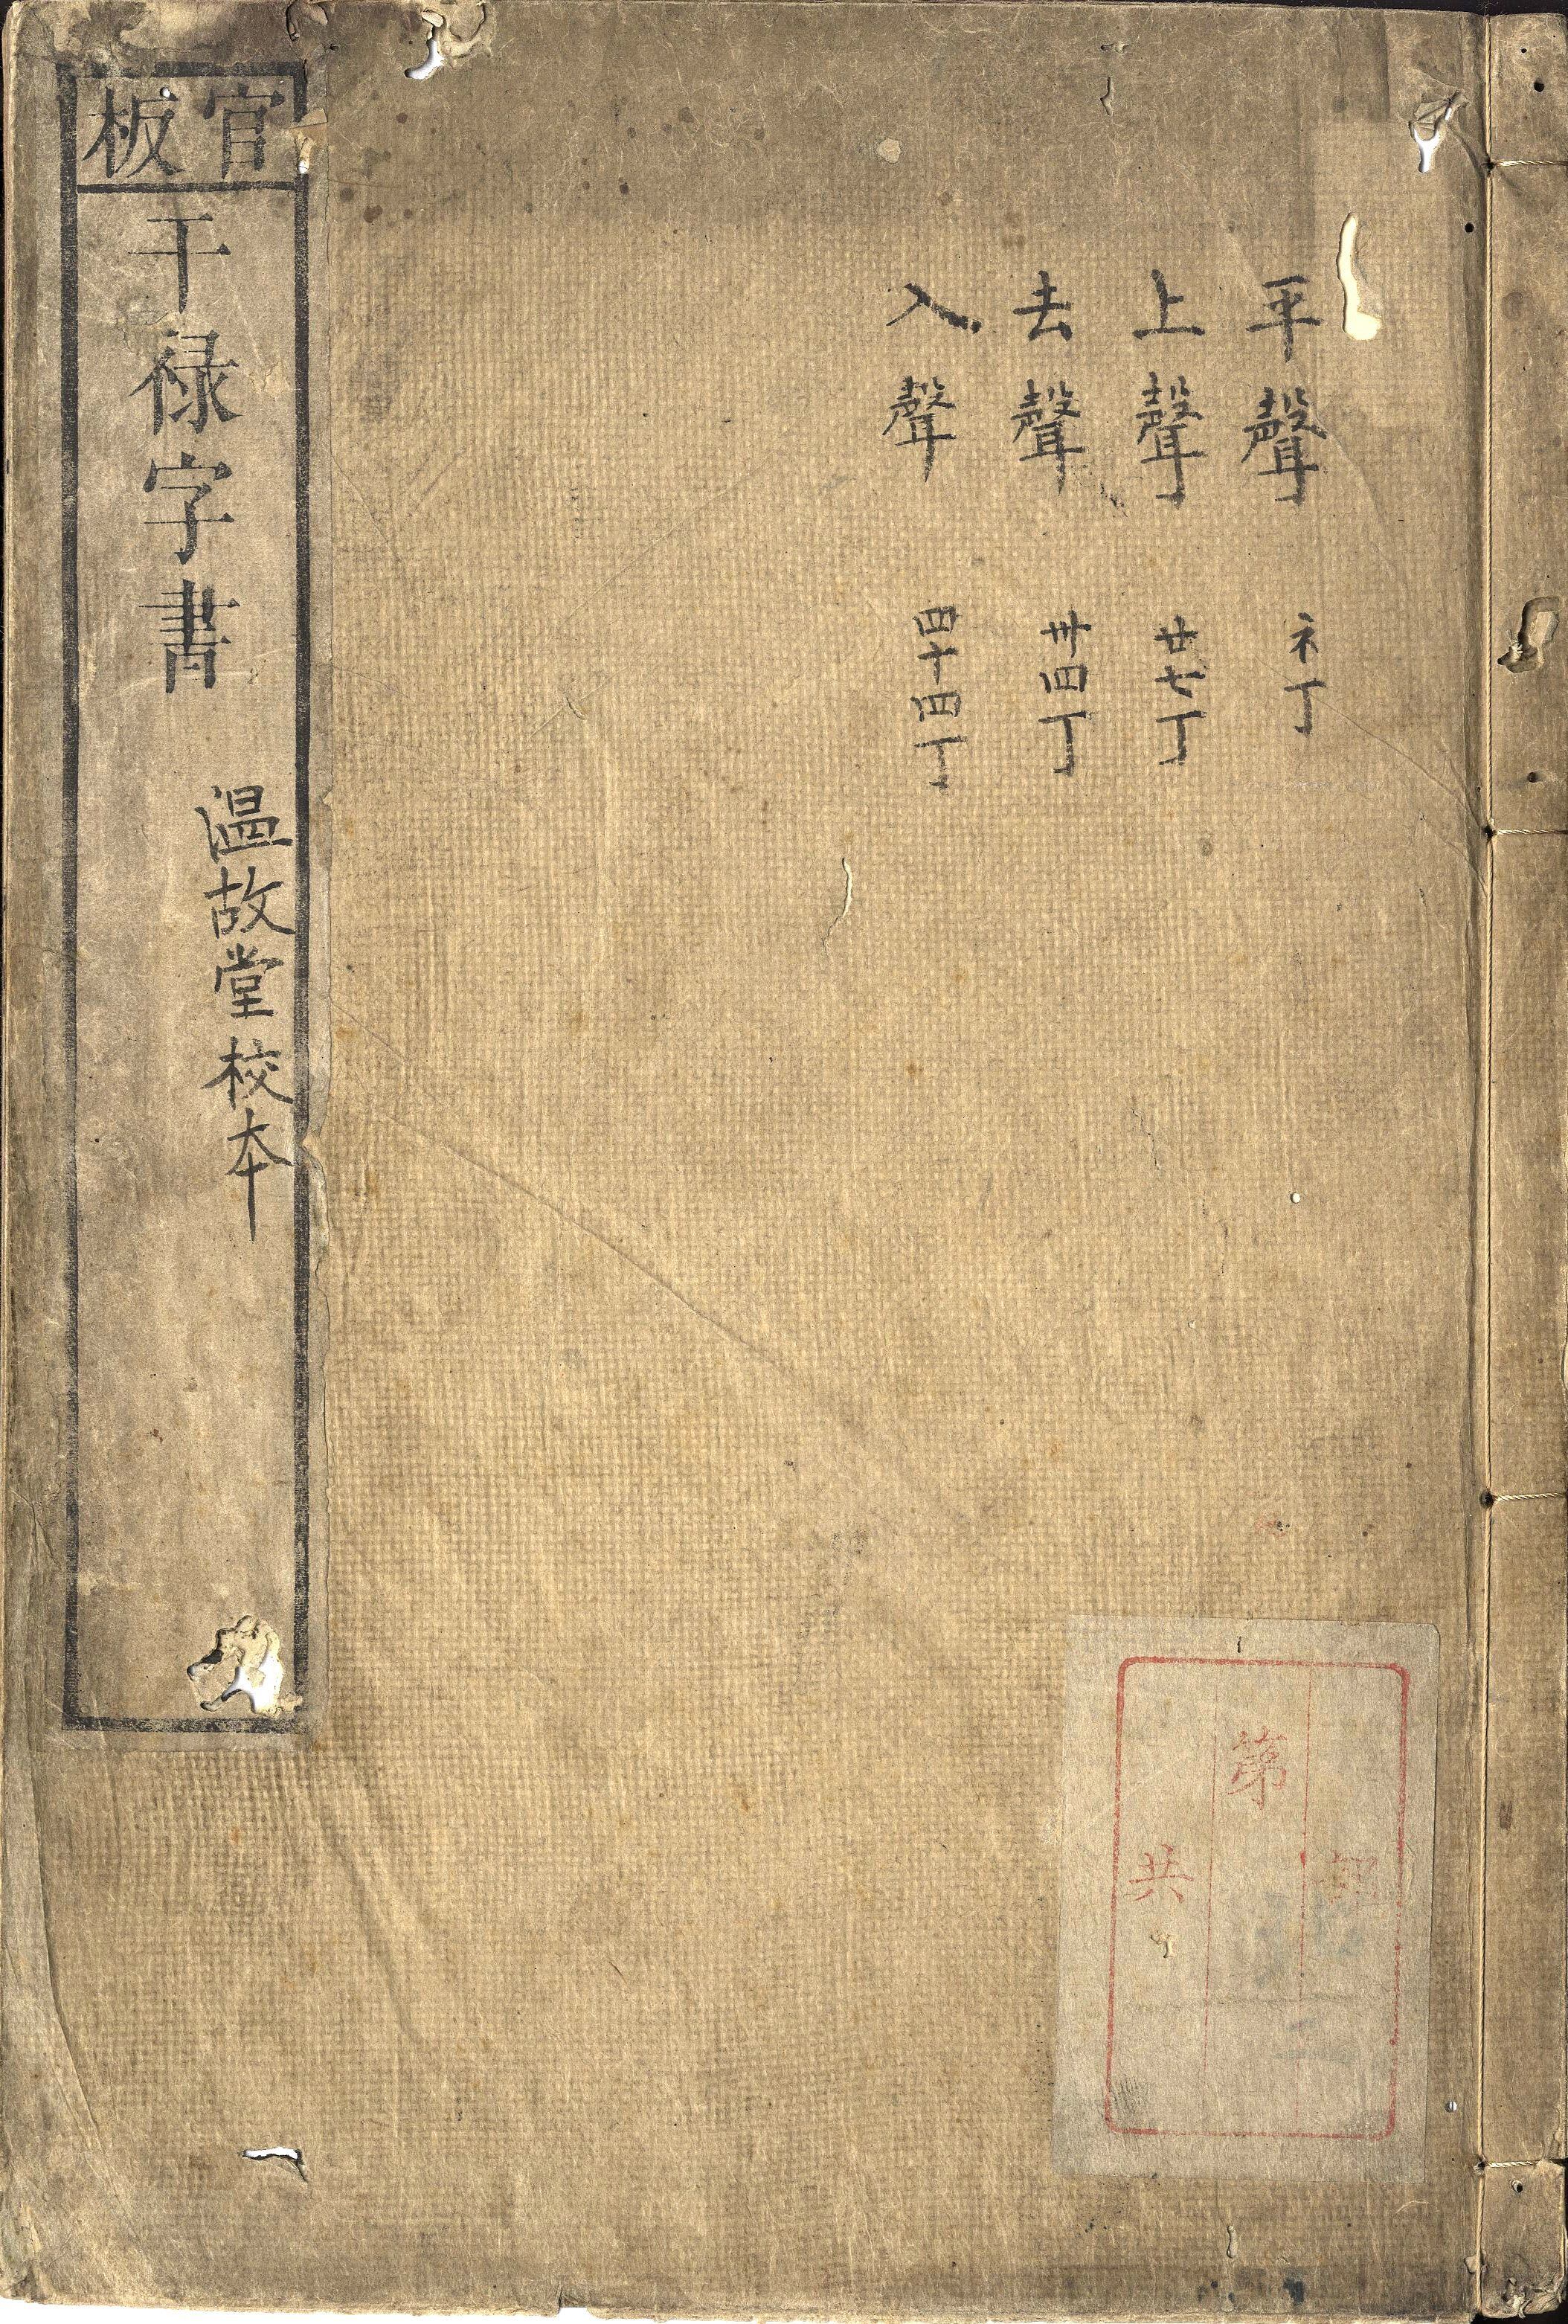 平聲 ネ丁
上聲 廿七丁
去聲 卅四丁
入聲 四十四丁
官板
干祿字書
温故堂校本
第
共